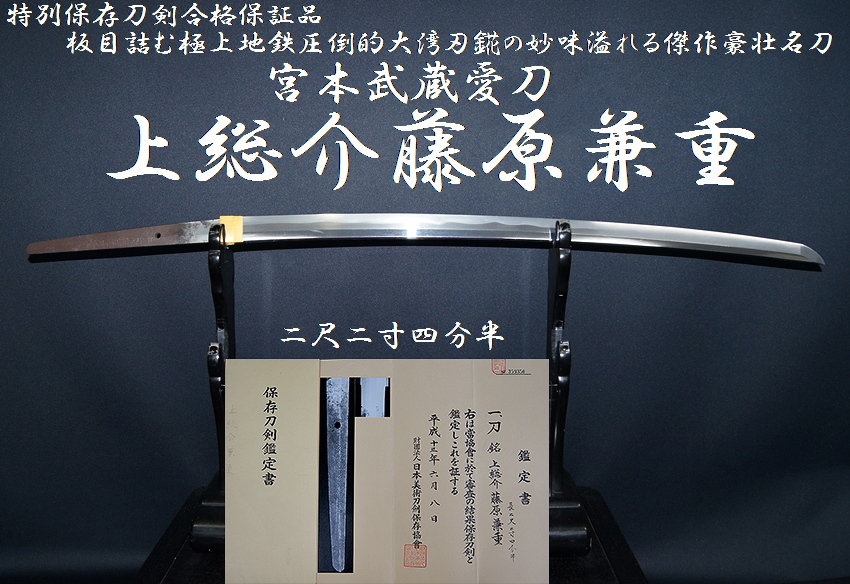 特別保存刀剣合格保証品
板目詰む極上地鉄圧倒的大湾刃錵の妙味溢れる傑作豪壮名刀
宮本武蔵愛刀
上総介藤原兼重
二尺二寸四分半
鑑定書
一、刀 銘 上総介藤原兼重
長二尺二寸四分半
右は當協會に於て審査の結果保存刀剣と
鑑定しこれを証する
平成十三年六月八日
財団法人日本美術刀剣保存協會
保存刀剣鑑定書